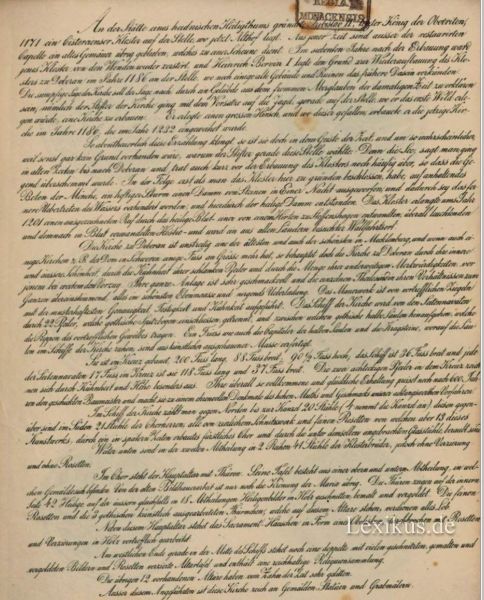 An der Stätte eines heidnischen Heiligthums gründete Pribislav II. erster König der Obotriten,
1171 ein Cistercienser Kloster auf der Stelle, wo jetzt Althof liegt. Aus jener Zeit sind ausser der restaurirten
Capelle ein altes Gemäuer übrig geblieben, welches zu einer Scheune dient. Im siebenten Jahre nach der Erbauung ward
jenes Kloster von den Wenden wieder zerstört, und Heinrich Borwin I legte den Grund zur Wiederaufbauung des Klo-
sters zu Doberan im Jahre 1186 an der Stelle, wo noch einzelne Gebäude und Ruinen das frühere Dasein verkünden.
Die sumpfige Lage der Kirche soll der Sage nach durch ein Gelübde aus dem frommen Aberglauben der damaligen Zeit zu erklären
sein, nämlich der Stifter der Kirche ging mit dem Vorsatze auf die Jagd, gerade auf der Stelle, wo er das erste Wild erle-
gen würde, eine Kirche zu erbauen. Er erlegte einen grossen Hirsch, und wo dieser gefallen, erbaute er die jetzige Kir-
che im Jahre 1186, die im Jahr 1232 eingeweihet wurde.
So abentheuerlich diese Erzählung klingt, so ist sie doch in dem Geiste der Zeit, und um so wahrscheinlicher,
weil sonst gar kein Grund vorhanden wäre, warum der Stifter gerade diese Stelle wählte. Denn die See, sagt man, ging
in alten Zeiten bis nach Doberan und trat auch kurz vor der Erbauung des Klosters noch häufig über, so dass die Ge-
gend überschwemmt wurde. In der Folge erst als man das Kloster hier zu gründen beschlossen, habe, auf anhaltendes
Beten der Mönche, ein heftiger Sturm einen Damm von Steinen in Einer Nacht ausgeworfen, und dadurch sey das fer-
nere Uebertreten des Wassers verhindert worden und hierdurch der heilige Damm entstanden. Das Kloster erlangte ums Jahr
1201 einen ausgezeichneten Ruf durch das heilige Blut, einer von einem Hirten zu Steffenshagen entwandten, überall leuchtenden
und demnach in Blut verwandelten Hostie und ward an aus allen Landen besuchter Wallfahrtsort.
Die Kirche zu Doberan ist unstreitig eine der ältesten und auch der schönsten in Mecklenburg, und wenn auch ei-
nige Kirchen z. B. der Dom in Schwerin einige Fuss an Grösse mehr hat, so behauptet doch die Kirche zu Doberan durch ihre innere
und äussere Schönheit, durch die Kühnheit ihrer schlanken Pfeiler und durch die Menge ihrer anderweitigen Merkwürdigkeiten vor
jenem bei weitem den Vorzug. Ihre ganze Anlage ist sehr geschmackvoll und die einzelnen Theile stimmen ihren Verhältnissen zum
Ganzen übereinstimmend, alles im schönsten Ebenmaasse und nirgend Ueberladung. Die Mauerwerk ist von vortrefflichen Ziegeln
mit der meisterhaftesten Genauigkeit, Festigkeit und Kühnheit aufgeführt. Das Schiff der Kirche wird von den Seitennavaten
durch 22 Pfeiler, welche gothische Spitzbogen einschliessen, getrennt, und zwischen welchen gothische halbe Säulen hinauflaufen, welche
die Rippen des vortrefflichen Gewölbes tragen. Ein Fries wie auch die Capitäler der halben Säulen und die Kragsteine, worauf die Säu-
len im Schiffe der Kirche ruhen, sind aus künstlich ausgehauener Masse verfertigt.
Sie ist im Kreuz gebaut, 266 Fuss lang, 88 Fuss breit, 90 ½ Fuss hoch, das Schiff ist 36 Fuss breit und jede
der Seitennavaten 17 Fuss ein Kreuz ist sie 118 Fuss lang und 37 Fuss breit. Die zwei achteckigen Pfeiler in dem Kreuz zeich-
nen sich durch Kühnheit und Höhe besonders aus. Ihre überall so vollkommene und glückliche Erhaltung preiset noch nach 600 Jah-
ren den geschickten Baumeister und macht sie zu einem ehrenvollen Denkmale des hohen Muths und Geschmacks unserer altkunstreichen Vorfahren.
Im Schiff der Kirche zählt man gegen Norden bis zur Kanzel 20 Stühle (4 nennt die Kanzel an) diesen gegen-
über sind im Süden 21 Stühle der Chorherren, alle von zierlichem Schnitzwerk und feinen Rosetten von welchen aber 13 dieses
Kunstwerks, durch ein in späteren Zeiten erbautes fürstliches Chor und durch die unter demselben angebrachten Glasstühle, beraubt sind.
Weiter unten sind in der zweiten Abtheilung in 2 Reihen 41 Stühle der Klosterbrüder, jedoch ohne Verzierung
und ohne Rosetten.
Im Chor steht der Hauptaltar mit Thüren. Seine Tafel besteht aus einer obern und untern Abtheilung, in wel-
chen Gemälde sich befinden. Von der alten Bildhauerarbeit ist nur noch die Krönung der Maria übrig. Die Thüren zeigen auf der innern
Seite 42 Heilige auf der äussern gleichfalls in 18 Abtheilungen Heiligenbilder in Holz geschnitten, bemalt und vergoldet. Die feinen
Rosetten und die 5 gothischen künstlich ausgearbeiteten Thürmchen, welche auf diesem Altare stehen, verdienen alles Lob.
Neben diesem Hauptaltar stehet das Sacrament Häuschen in Form eines Obelisken, gleichfalls mit Rosetten
und Verzierungen in Holz vortrefflich gearbeitet.
Am westlichen Ende gerade in der Mitte des Schiffs stehet noch eine doppelte mit vielen geschnitzten, gemalten und
vergoldeten Bildern und Rosetten verzierte Altartafel und enthält eine reichhaltige Reliquiensammlung.
Die übrigen 12 vorhandenen Altäre haben vom Zahn der Zeit sehr gelitten.
Ausser diesem Angeführten ist diese Kirche reich an Gemälden, Statuen und Grabmälern.
Lexikus.de